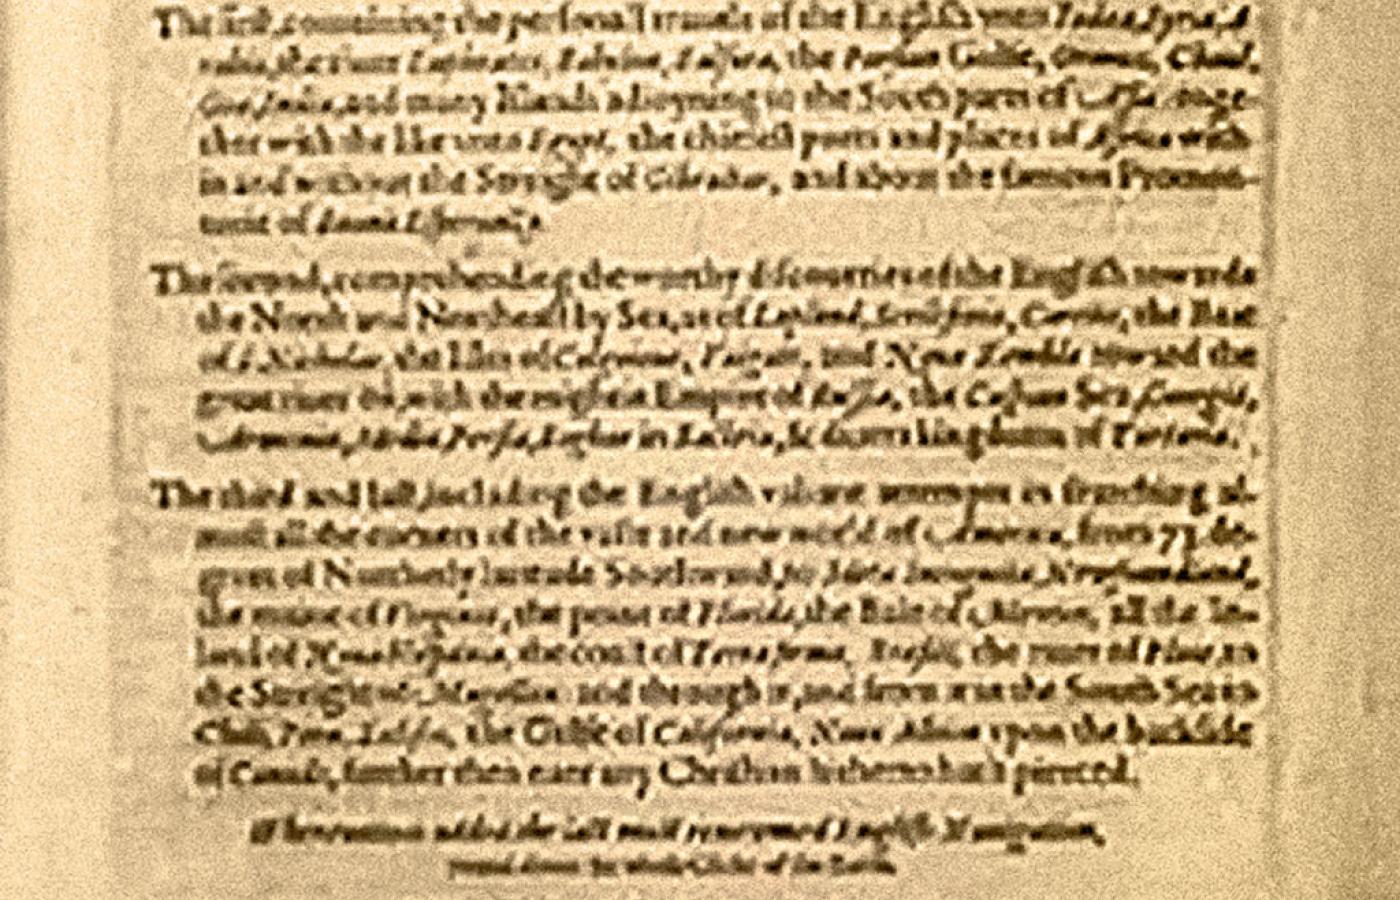 The first, containing the personall trauels of the English vnto Iudæa, Syria, A-
rabia, the riuer Euphrates, Babylon, Balsara, the Persian Gulfe, Ormuz, Chaul,
Goa, India, and many Islands adioyning to the South parts of Asia: toge-
ther with the like vnto Egypt, the chiefest ports and places of Africa with-
in and without the Streight of Gibraltar, and about the famous Promon-
torie of Buona Esperança.
The second, comprehending the worthy discoueries of the English towards
the North and Northeast by Sea, as of Lapland, Scrikfinia, Corelia, the Baie
of S. Nicholas, the Isles of Colgoieue, Vaigats, and Noua Zembla toward the
great riuer Ob, with the mightie Empire of Russia, the Caspian Sea, Georgia,
Armenia, Media, Persia, Boghar in Bactria, & diuers kingdoms of Tartaria.
The third and last, including the English valiant attempts in searching al-
most all the corners of the vaste and new world of America, from 73. de-
grees of Northerly latitude Southward, to Meta Incognita, Newfoundland,
the maine of Virginia, the point of Florida, the Baie of Mexico, all the In-
land of Noua Hispania, the coast of Terra firma, Brasill, the riuer of Plate, to
the Streight of Magellan: and through it, and from it in the South Sea to
Chili, Peru, Xalisco, the Gulfe of California, Noua Albion vpon the backside
of Canada, further then euer any Christian hitherto hath pierced.
Whereunto is added the last most renowmed English Nauigation,
round about the whole Globe of the Earth.